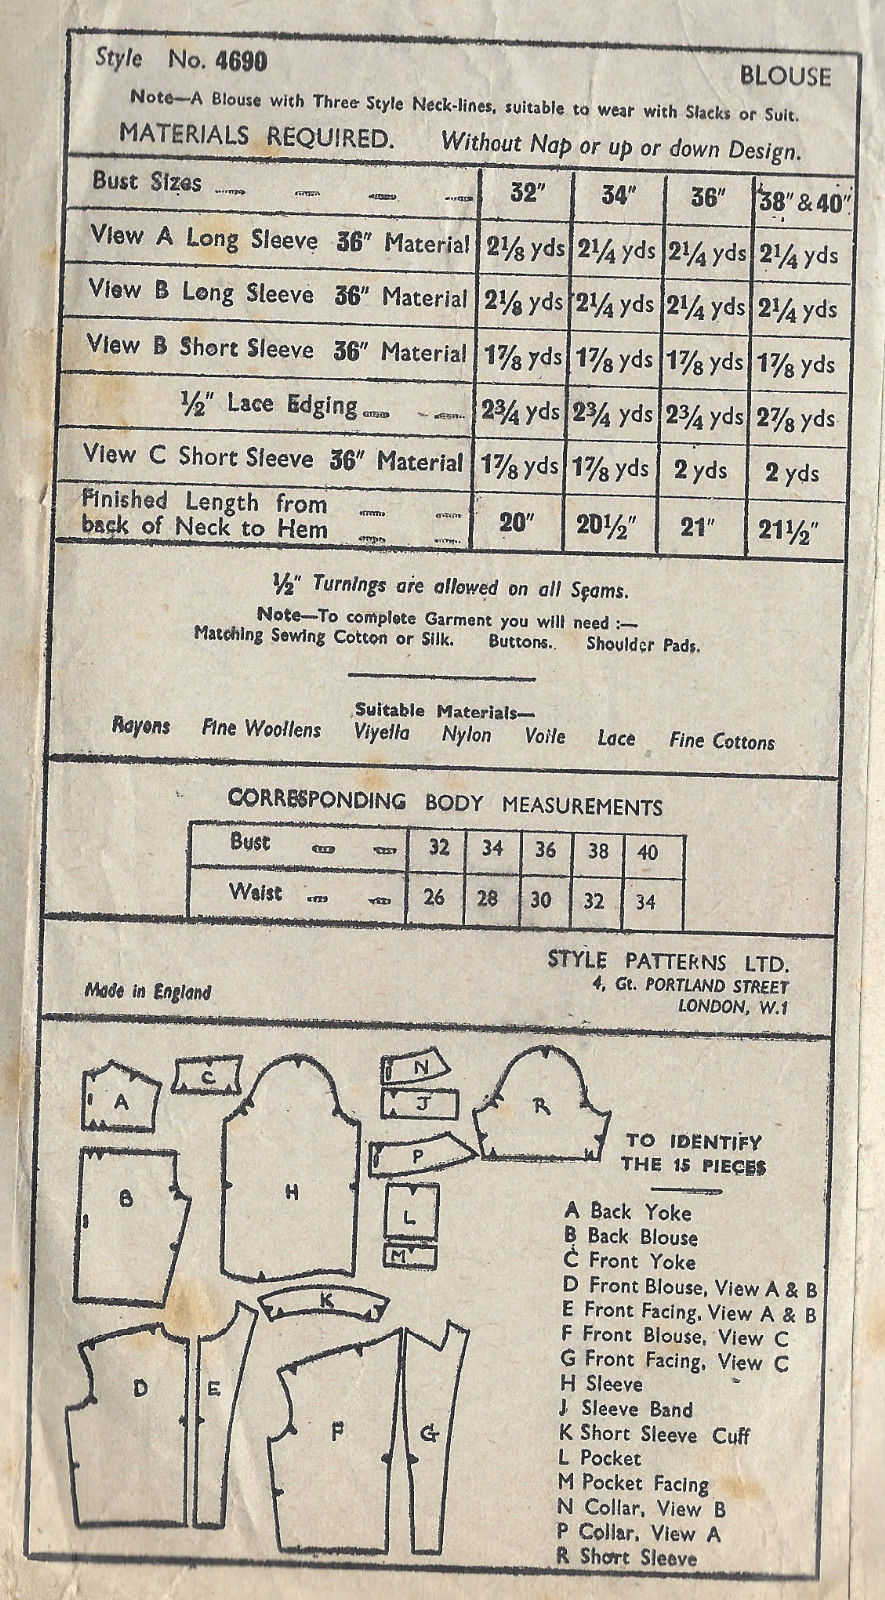 Style No. 4690
BLOUSE
Note—A Blouse with Three Style Neck-lines, suitable to wear with Slacks or Suit.
MATERIALS REQUIRED. Without Nap or up or down Design.
Bust Sizes 32″ 34″ 36″ 38″ & 40″
View A Long Sleeve 36″ Material 2⅛ yds 2¼ yds 2¼ yds 2¼ yds
View B Long Sleeve 36″ Material 2⅛ yds 2¼ yds 2¼ yds 2¼ yds
View B Short Sleeve 36″ Material 1⅞ yds 1⅞ yds 1⅞ yds 1⅞ yds
½″ Lace Edging 2¾ yds 2¾ yds 2¾ yds 2⅞ yds
View C Short Sleeve 36″ Material 1⅞ yds 1⅞ yds 2 yds 2 yds
Finished Length from
back of Neck to Hem 20″ 20½″ 21″ 21½″
½″ Turnings are allowed on all Seams.
Note—To complete Garment you will need :—
Matching Sewing Cotton or Silk. Buttons. Shoulder Pads.
Suitable Materials—
Rayons Fine Woollens Viyella Nylon Voile Lace Fine Cottons
CORRESPONDING BODY MEASUREMENTS
Bust 32 34 36 38 40
Waist 26 28 30 32 34
STYLE PATTERNS LTD.
4, Gt. PORTLAND STREET
LONDON, W.1
Made in England
A
C
H
N
J
R
P
B
L
M
K
D
E
F
G
TO IDENTIFY
THE 15 PIECES
A Back Yoke
B Back Blouse
C Front Yoke
D Front Blouse, View A & B
E Front Facing, View A & B
F Front Blouse, View C
G Front Facing, View C
H Sleeve
J Sleeve Band
K Short Sleeve Cuff
L Pocket
M Pocket Facing
N Collar, View B
P Collar, View A
R Short Sleeve